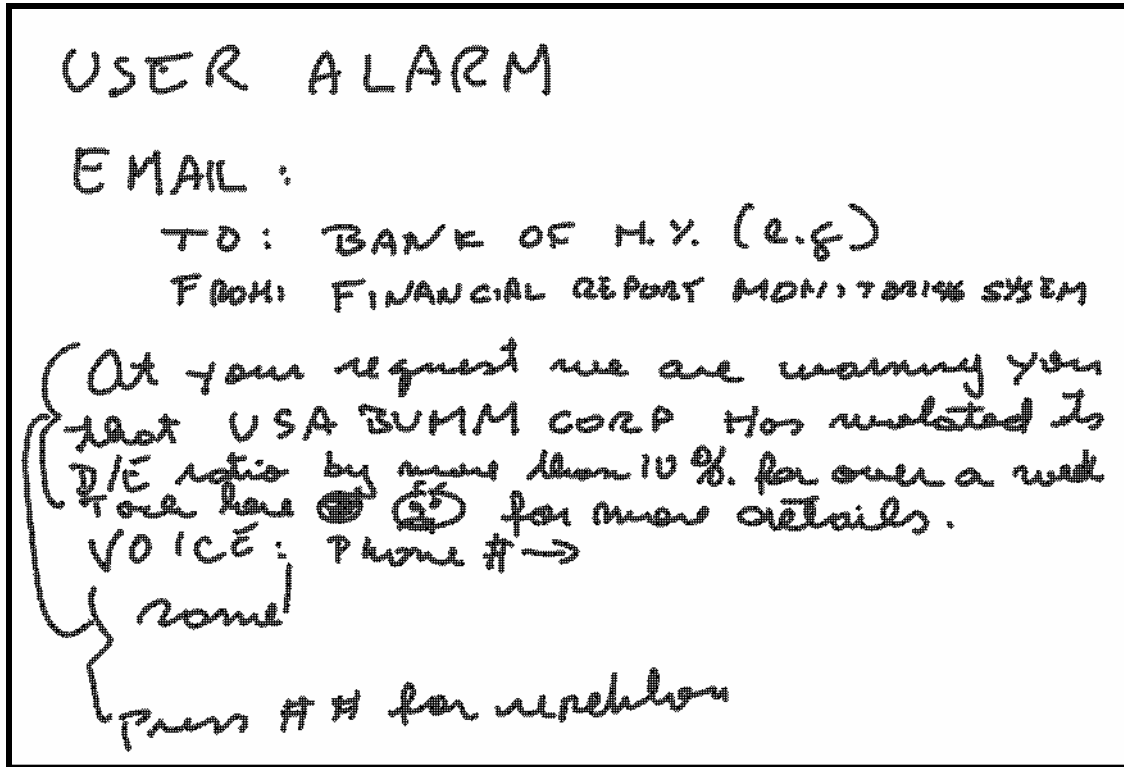 USER ALARM
EMAIL:
TO: BANK OF N.Y. (e.g)
FROM: FINANCIAL REPORT MONITORING SYSTEM
At your request we are warning you
that USA BUMM CORP Has violated its
D/E ratio by more than 10%. for over a week
here for more details.
VOICE: Phone # →
same
Press ## for repetition